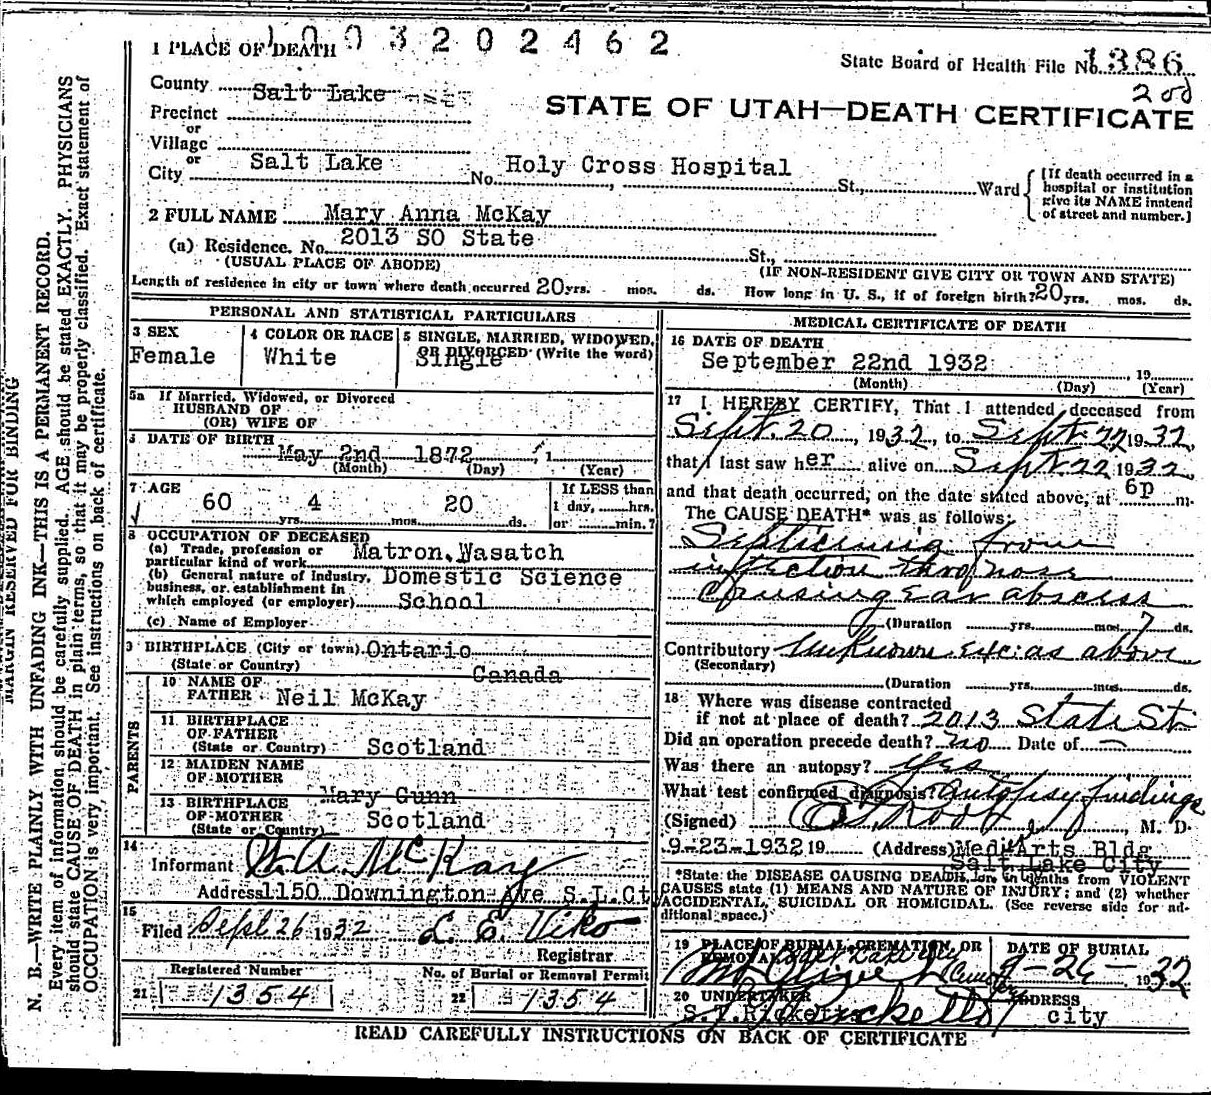 1003202462
1 PLACE OF DEATH
State Board of Health File No. 1386
200
County Salt Lake
STATE OF UTAH—DEATH CERTIFICATE
Precinct
or
Village
or
City Salt Lake No. Holy Cross Hospital St., Ward
[If death occurred in a hospital or institution give its NAME instead of street and number.]
2 FULL NAME Mary Anna McKay
(a) Residence. No. 2013 SO State St.,
(USUAL PLACE OF ABODE) (IF NON-RESIDENT GIVE CITY OR TOWN AND STATE)
Length of residence in city or town where death occurred 20 yrs. mos. ds. How long in U. S., if of foreign birth? 20 yrs. mos. ds.
PERSONAL AND STATISTICAL PARTICULARS
3 SEX 4 COLOR OR RACE 5 SINGLE, MARRIED, WIDOWED,
OR DIVORCED (Write the word)
Female White Single
5a If Married, Widowed, or Divorced
HUSBAND OF
(OR) WIFE OF
6 DATE OF BIRTH
May 2nd 1872
(Month) (Day) (Year)
7 AGE
60 yrs. 4 mos. 20 ds.
If LESS than
1 day, hrs.
or min.?
8 OCCUPATION OF DECEASED
(a) Trade, profession or
particular kind of work Matron, Wasatch
(b) General nature of Industry, Domestic Science
business, or establishment in
which employed (or employer) School
(c) Name of Employer
9 BIRTHPLACE (City or town) Ontario
(State or Country) Canada
PARENTS
10 NAME OF
FATHER Neil McKay
11 BIRTHPLACE
OF FATHER
(State or Country) Scotland
12 MAIDEN NAME
OF MOTHER
Mary Gunn
13 BIRTHPLACE
OF MOTHER Scotland
(State or Country)
14
Informant W. A. McKay
Address 1150 Downington Ave S.L.Ct
15
Filed Sept 26 1932 L. E. Viko
Registrar
Registered Number No. of Burial or Removal Permit
21 1354 22 1354
MEDICAL CERTIFICATE OF DEATH
16 DATE OF DEATH
September 22nd 1932, 19
(Month) (Day) (Year)
17 I HEREBY CERTIFY, That I attended deceased from
Sept. 20, 1932, to Sept. 22 1932,
that I last saw her alive on Sept 22 1932
and that death occurred, on the date stated above, at 6p m.
The CAUSE DEATH* was as follows:
Septicemia from
infection thro nose
causing ear abscess
(Duration yrs. mos. 7 ds.
Contributory Unknown exc. as above
(Secondary)
(Duration yrs. mos. ds.
18 Where was disease contracted
if not at place of death? 2013 State St.
Did an operation precede death? no Date of —
Was there an autopsy? Yes
What test confirmed diagnosis? Autopsy findings
(Signed) , M. D.
9-23-1932 19 (Address) Medi Arts Bldg
Salt Lake City
*State the DISEASE CAUSING DEATH, or in deaths from VIOLENT
CAUSES state (1) MEANS AND NATURE OF INJURY; and (2) whether
ACCIDENTAL, SUICIDAL OR HOMICIDAL. (See reverse side for additional space.)
19 PLACE OF BURIAL, CREMATION, OR
REMOVAL Salt Lake City
Mt Olivet
DATE OF BURIAL
9-26-1932
20 UNDERTAKER
S.T.Ricketts
ADDRESS
city
READ CAREFULLY INSTRUCTIONS ON BACK OF CERTIFICATE
MARGIN RESERVED FOR BINDING
N. B.—WRITE PLAINLY WITH UNFADING INK—THIS IS A PERMANENT RECORD.
Every item of information should be carefully supplied. AGE should be stated EXACTLY. PHYSICIANS
should state CAUSE OF DEATH in plain terms, so that it may be properly classified. Exact statement of
OCCUPATION is very important. See instructions on back of certificate.